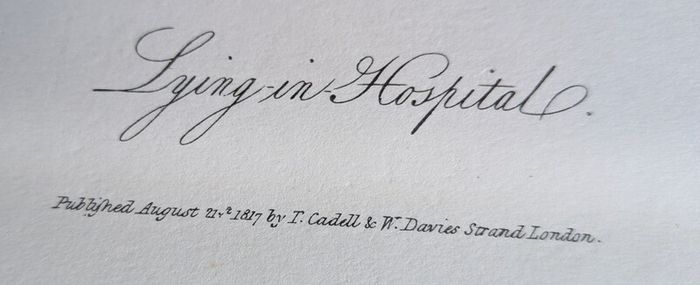 Lying-in-Hospital.
Publiſhed August 21st 1817 by T. Cadell & W. Davies Strand London.